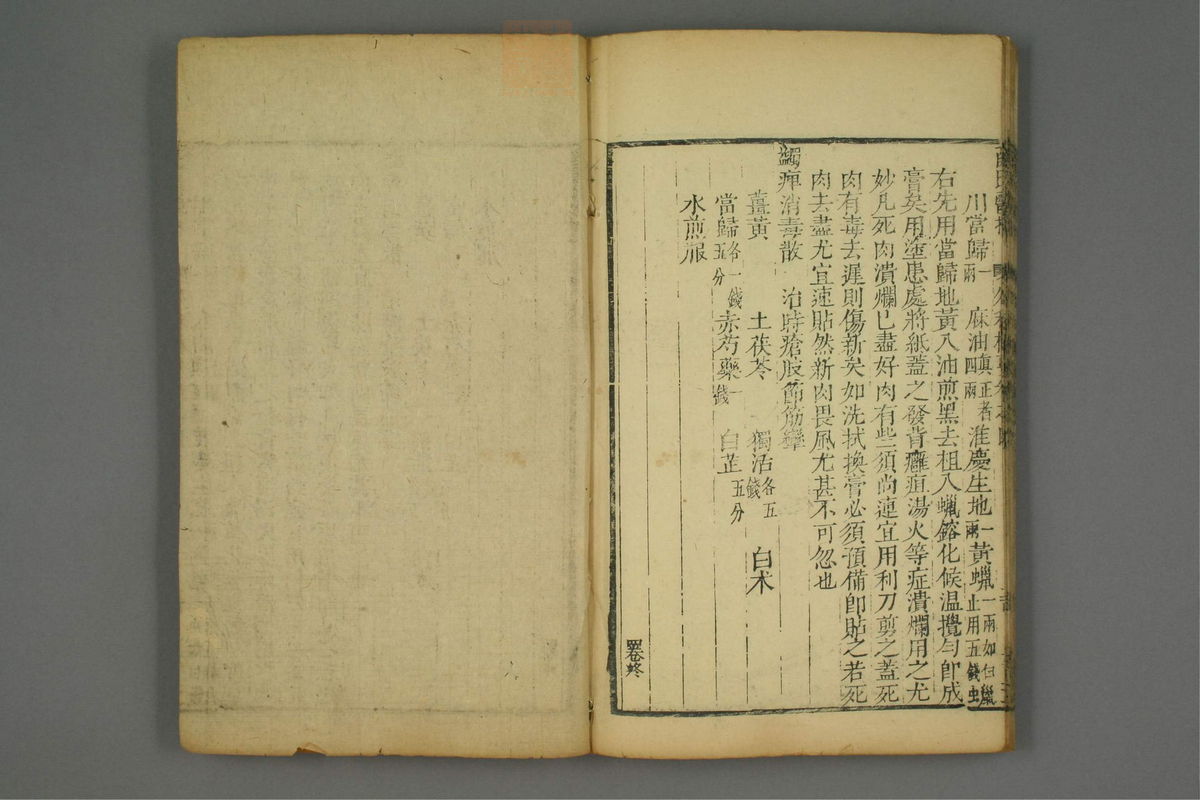 川當歸一兩 麻油真正者四兩 淮慶生地一兩 黃蠟一兩如白蠟止用五錢虫
右先用當歸地黃入油煎黑去柤入蠟鎔化候温攪勻卽成
膏矣用塗患處將紙蓋之發背癰疽湯火等症潰爛用之尤
妙凡死肉潰爛已盡好肉有些須尚連宜用利刀剪之蓋死
肉有毒去遲則傷新矣如洗拭換膏必須預備卽貼之若死
肉去盡尤宜速貼然新肉畏風尤甚不可忽也
蠲痺消毒散 治時瘡肢節筋攣
薑黃 土茯苓 獨活各五錢 白朮
當歸各一錢五分 赤芍藥一錢 白芷五分
水煎服
卷終